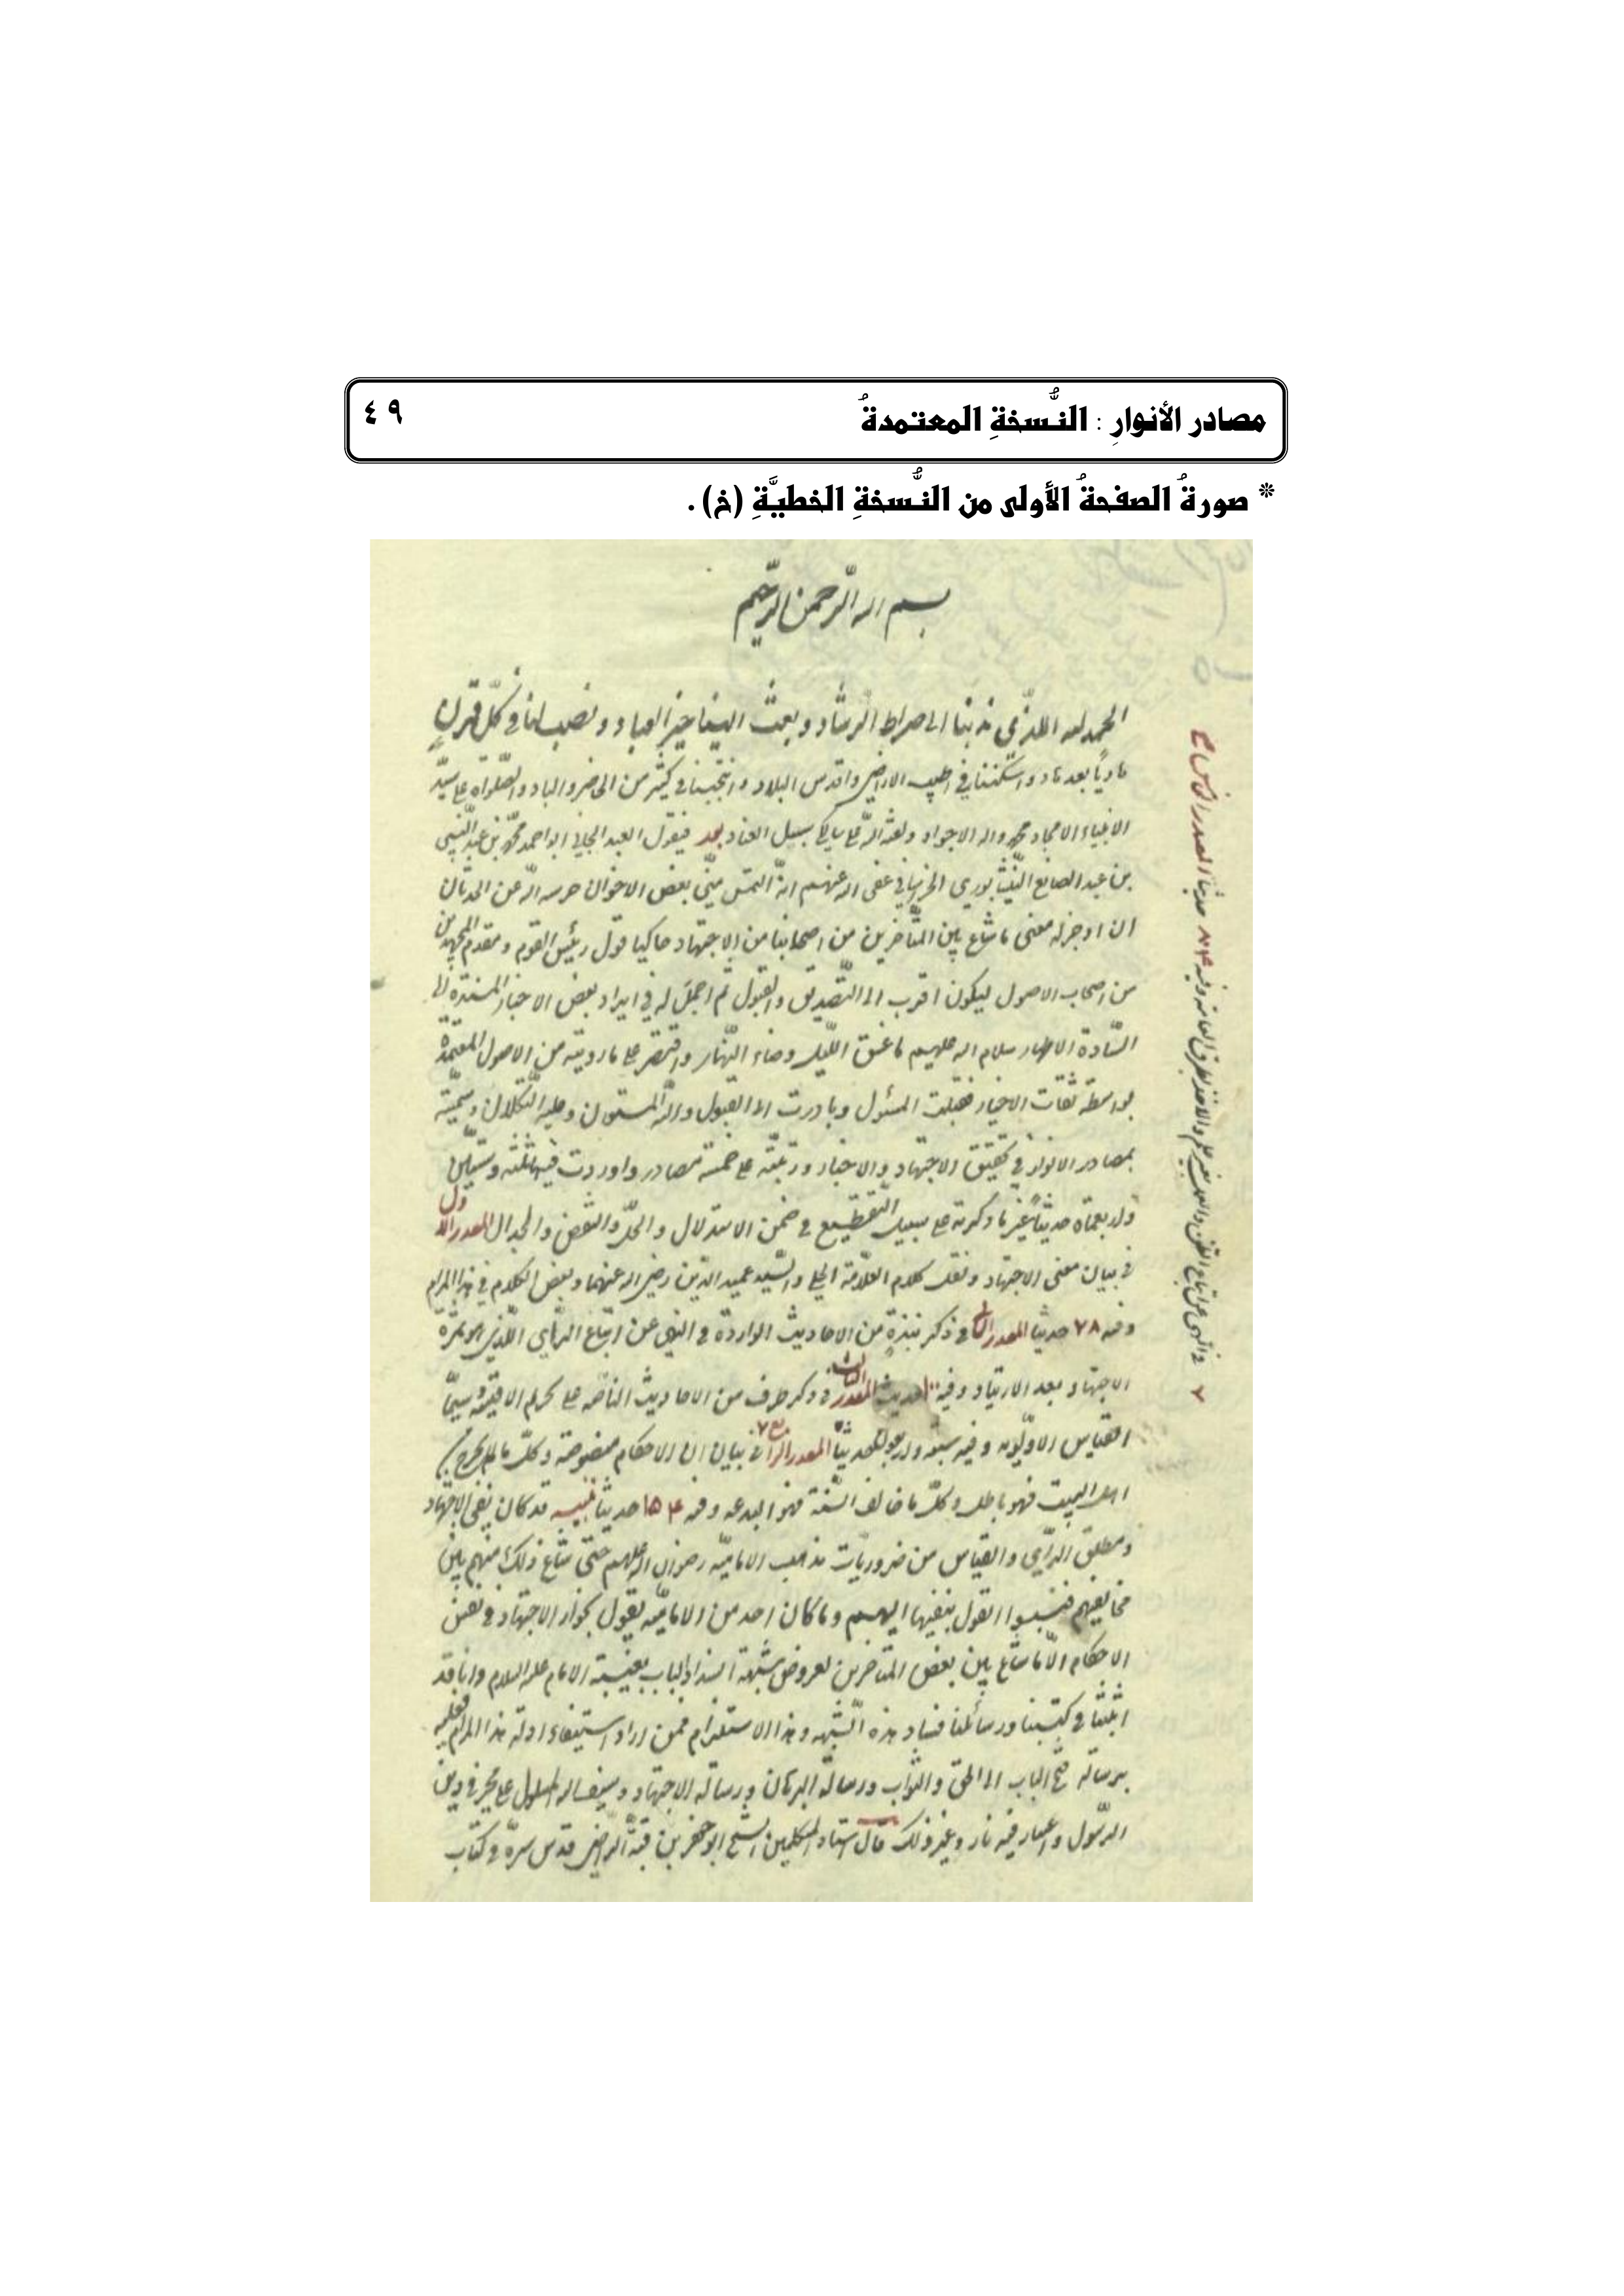 مصادر الأنوارِ : النُّسخةِ المعتمدةُ ٤٩
* صورةُ الصفحةُ الأولى من النُّسخةِ الخطيَّةِ (خ) .
بسم الله الرّحمن الرّحيم
الحمد لله الذي هدينا الى صراط الرشاد وبعث الينا خير العباد ونصب لنا في كلّ قرن
هادياً بعد هاد واسكننا في اطيب الاراضي واقدس البلاد وانتجبنا في كثير من الحاضر والباد والصّلواة على سيّد
الانبياء الامجاد محمد واله الاجواد ولعنة الله على سبيل العناد بعد فيقول العبد الجاني ابو احمد محمّد بن عبد النّبي
بن عبد الصانع النّيشابوري الخراساني عفى الله عنهم انّه التمس منّي بعض الاخوان حرسه الله عن الحدثان
ان اوجز له معنى ما شاع بين المتأخرين من اصحابنا من الاجتهاد حاكيا قول رئيس القوم ومقدم المجتهدين
من اصحاب الاصول ليكون اقرب الى التّصديق والقبول ثم اجمل له في ايراد بعض الاخبار المسندة الى
السّادة الاطهار سلام الله عليهم ما غسق اللّيل وضاء النّهار واقتصر على ما رويته من الاصول المعتمدة
بواسطة ثقات الاخيار فقبلت المسئول وبادرت الى القبول والله المستعان وعليه التّكلان وسمّيته
بمصادر الانوار في تحقيق الاجتهاد والاخبار ورتبته على خمسة مصادر واوردت فيها ثلثه وستين
واربعمأة حديثاً غير ما ذكرته على سبيل التقطيع في ضمن الاستدلال والحلّ والنقض والجدال المصدر الاول
في بيان معنى الاجتهاد ونقل كلام العلّامة الحلي والسّيد عميد الدّين رضي الله عنهما وبعض الكلام في هذا المرام
وفيه ٧٨ حديثا المصدر الثاني في ذكر نبذة من الاحاديث الواردة في النهي عن اتباع الرّأي الّذي هو ثمرة
الاجتهاد بعد الارتياد وفيه حديث المصدر الثالث في ذكر طرف من الاحاديث الناصّه على تحريم الاقيسة سيّما
القياس الاولويه وفيه سبعه واربعون حديثاً المصدر الرابع في بيان ان الاحكام منصوصة وكلّ ما لم يخرج من
اهل البيت فهو باطل وكلّ ما خالف السّنة فهو البدعه وفيه ١٥٤ حديثا تنبيه قد كان نفي الاجتهاد
ومطلق الرّأي والقياس من ضروريات مذهب الاماميّه رضوان الله عليهم حتى شاع ذلك منهم بين
مخالفيهم فنسبوا القول بنفيها اليهم وما كان احد من الاماميّه يقول بجواز الاجتهاد في نفس
الاحكام الّا ما شاع بين بعض المتاخرين لعروض شبهة انسداد الباب بغيبة الامام عليه السلام وانا قد
اثبتنا في كتبنا ورسائلنا فساد هذه الشّبهه وهذا الاستلزام فمن اراد استيفاء ادلة هذا المرام فعليه
برسالة فتح الباب الى الحق والثّواب ورسالة البرهان ورسالة الاجتهاد وسيف الله المسلول على محرفي دين
الرّسول واعصار فيه نار وغير ذلك قال استاد المتكلمين الشّيخ ابو جعفر بن قبة الرّاضي قدس سرّه في كتاب